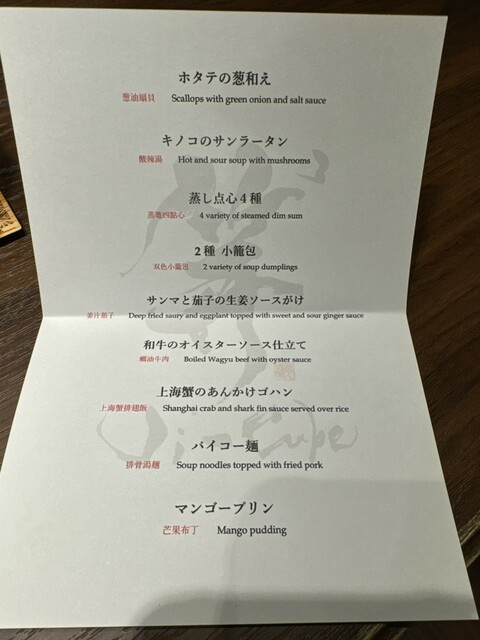 ホタテの葱和え
葱油扇貝 Scallops with green onion and salt sauce
キノコのサンラータン
酸辣湯 Hot and sour soup with mushrooms
蒸し点心4種
蒸籠四點心 4 variety of steamed dim sum
2種 小籠包
双色小籠包 2 variety of soup dumplings
サンマと茄子の生姜ソースがけ
姜汁茄子 Deep fried saury and eggplant topped with sweet and sour ginger sauce
和牛のオイスターソース仕立て
蠔油牛肉 Boiled Wagyu beef with oyster sauce
上海蟹のあんかけゴハン
上海蟹排翅飯 Shanghai crab and shark fin sauce served over rice
パイコー麺
排骨湯麺 Soup noodles topped with fried pork
マンゴープリン
芒果布丁 Mango pudding